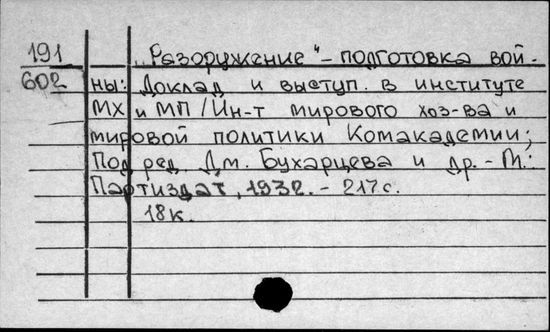 191 „Разоружение" - подготовка вой-
602 ны: Доклад и выступ. в институте
МХ и МП / Ин-т мирового хоз-ва и
мировой политики Комакадемии;
Под ред. Дм. Бухарцева и др. - М.:
Партиздат, 1932. - 217 с.
18 к.